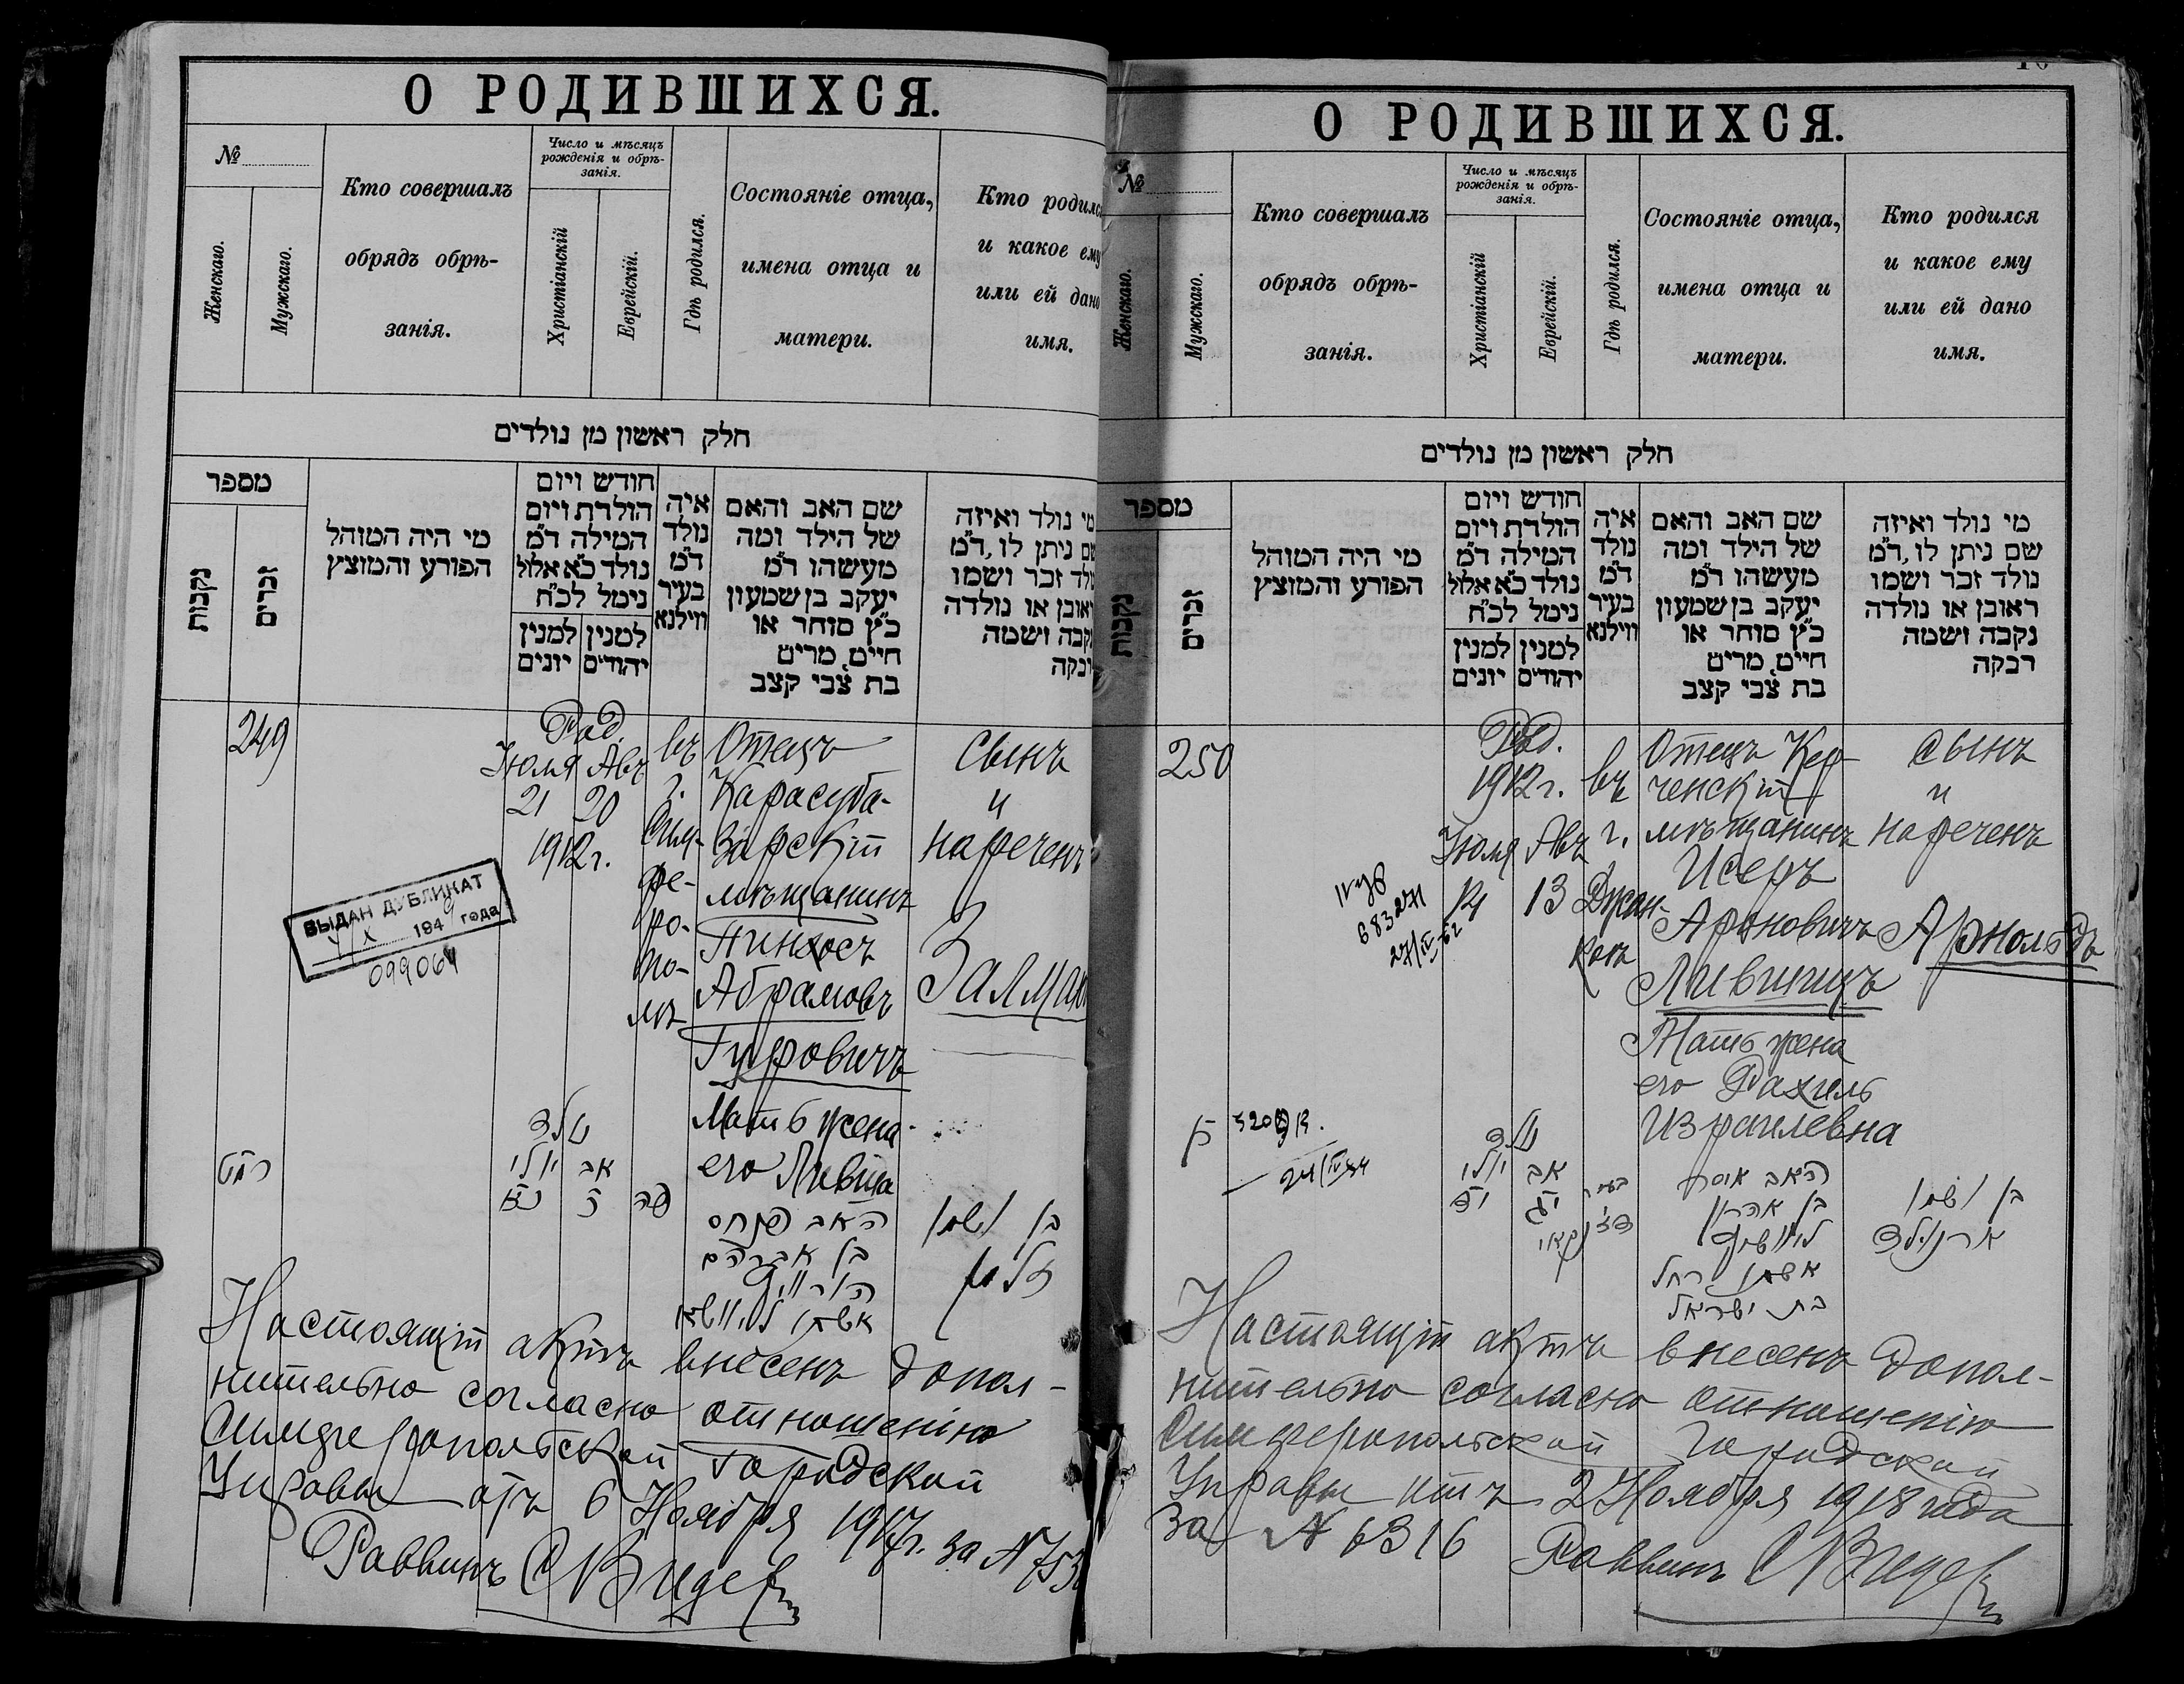 О РОДИВШИХСЯ.
№
Женскаго.
Мужскаго.
Кто совершалъ
обрядъ обрѣ-
занія.
Число и мѣсяцъ
рожденія и обрѣ-
занія.
Христіанскій
Еврейскій.
Гдѣ родился.
Состояніе отца,
имена отца и
матери.
Кто родилс
и какое ему
или ей дано
имя.
חלק ראשון מן נולדים
מספר
נקבות
זכרים
מי היה המוהל
הפורע והמוצץ
חודש ויום
הולדת ויום
המילה ד״מ
נולד כ״א אלול
נימל לכ״ח
למנין יונים
למנין יהודים
איה
נולד
ד״מ
בעיר
ווילנא
שם האב והאם
של הילד ומה
מעשהו ד״מ
יעקב בן שמעון
כ״ץ סוחר או
חייט מרים
בת צבי קצב
מי נולד ואיזה
שם ניתן לו, ד״מ
נולד זכר ושמו
ראובן או נולדה
נקבה ושמה
249
Род.
Іюля Авъ
21 20
1912 г.
въ
г.
Сим-
фе-
ро-
по-
лѣ
Отецъ
Карасуба-
зарскій
мѣщанинъ
Пинхосъ
Абрамовъ
Гуровичъ
Мать жена
его
Сынъ
и
нареченъ
Залман
ВЫДАН ДУБЛИКАТ
194 года
רמט
נולד
יולי אב
האב פנחס
בן אברהם
הורוויץ
בן ושמו
זלמן
Настоящій актъ внесенъ допол-
нительно согласно отношенію
Симферопольской Городской
Управы отъ 6 Ноября 1917 г. за №
Раввинъ
О РОДИВШИХСЯ.
№
Женскаго.
Мужскаго.
Кто совершалъ
обрядъ обрѣ-
занія.
Число и мѣсяцъ
рожденія и обрѣ-
занія.
Христіанскій
Еврейскій.
Гдѣ родился.
Состояніе отца,
имена отца и
матери.
Кто родился
и какое ему
или ей дано
имя.
חלק ראשון מן נולדים
מספר
נקבות
זכרים
מי היה המוהל
הפורע והמוצץ
חודש ויום
הולדת ויום
המילה ד״מ
נולד כ״א אלול
נימל לכ״ח
למנין יונים
למנין יהודים
איה
נולד
ד״מ
בעיר
ווילנא
שם האב והאם
של הילד ומה
מעשהו ד״מ
יעקב בן שמעון
כ״ץ סוחר או
חייט מרים
בת צבי קצב
מי נולד ואיזה
שם ניתן לו, ד״מ
נולד זכר ושמו
ראובן או נולדה
נקבה ושמה
רבקה
250
Род.
1912 г.
Іюля Авъ
14 13
въ
г.
Джан-
коѣ
Отецъ Кер-
ченскій
мѣщанинъ
Исеръ
Ароновичъ
Лившицъ
Мать жена
его Рахиль
Израилевна
Сынъ
и
нареченъ
Арнольдъ
רן
נולד
יולי אב
יד יג
בעיר
דזאנקאוי
האב איסר
בן אהרון
ליוושיץ
אשתו רחל
בת ישראל
בן ושמו
ארנולד
Настоящій актъ внесенъ допол-
нительно согласно отношенію
Симферопольской Городской
Управы отъ 2 Ноября 1918 года
за № 6316
Раввинъ